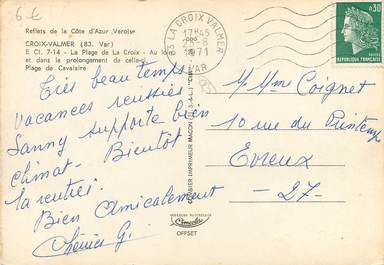 6 €
Reflets de la Côte d'Azur Varoise
CROIX-VALMER (83. Var)
E CI. 7-14 - La Plage de La Croix - Au loin
et dans le prolongement de celle-
Plage de Cavalaire
83 LA CROIX VALMER
17H45
1971
VAR
0,30
REPUBLIQUE FRANÇAISE
POSTES
Très beau temps
Vacances réussies
Sanny supporte bien
climat. Bientôt
la rentrée.
Bien Amicalement
IMPRIMEUR MACON
M. Mme Coignet
10 rue du Printemps
Evreux
-27-
Combier
OFFSET